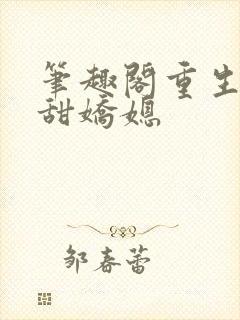 筆趣閣重生
甜嬌媳
鄒春蕾